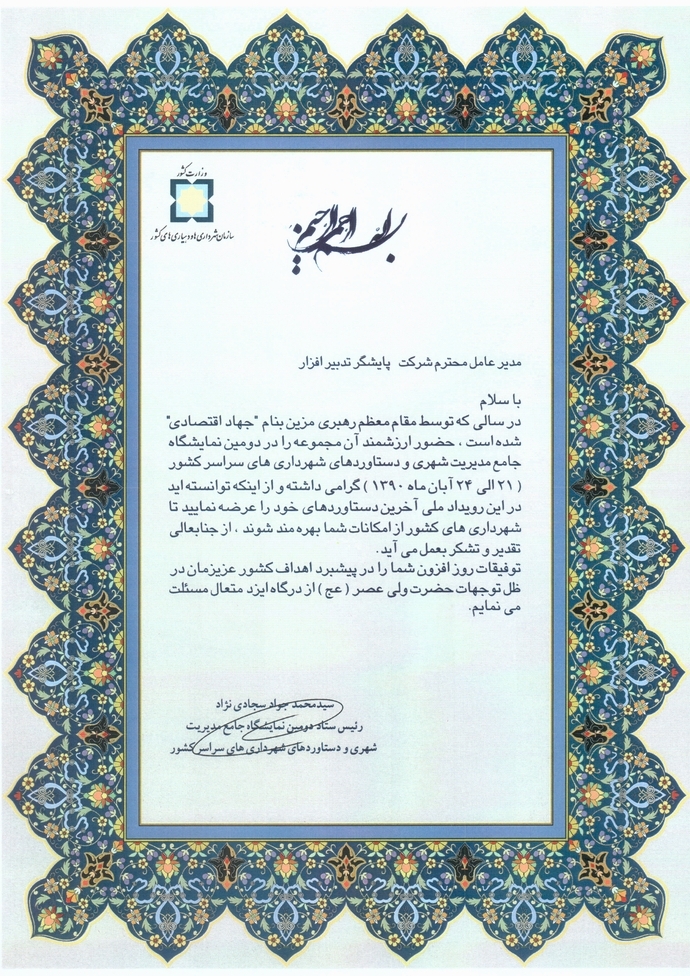 وزارت کشور
سازمان شهرداری ها و دهیاری های کشور
بسم الله الرحمن الرحیم
مدیر عامل محترم شرکت پایشگر تدبیر افزار
با سلام
در سالی که توسط مقام معظم رهبری مزین بنام "جهاد اقتصادی"
شده است ، حضور ارزشمند آن مجموعه را در دومین نمایشگاه
جامع مدیریت شهری و دستاوردهای شهرداری های سراسر کشور
( ۲۱ الی ۲۴ آبان ماه ۱۳۹۰ ) گرامی داشته و از اینکه توانسته اید
در این رویداد ملی آخرین دستاوردهای خود را عرضه نمایید تا
شهرداری های کشور از امکانات شما بهره مند شوند ، از جنابعالی
تقدیر و تشکر بعمل می آید .
توفیقات روز افزون شما را در پیشبرد اهداف کشور عزیزمان در
ظل توجهات حضرت ولی عصر ( عج ) از درگاه ایزد متعال مسئلت
می نمایم.
سیدمحمد جواد سجادی نژاد
رئیس ستاد دومین نمایشگاه جامع مدیریت
شهری و دستاوردهای شهرداری های سراسر کشور